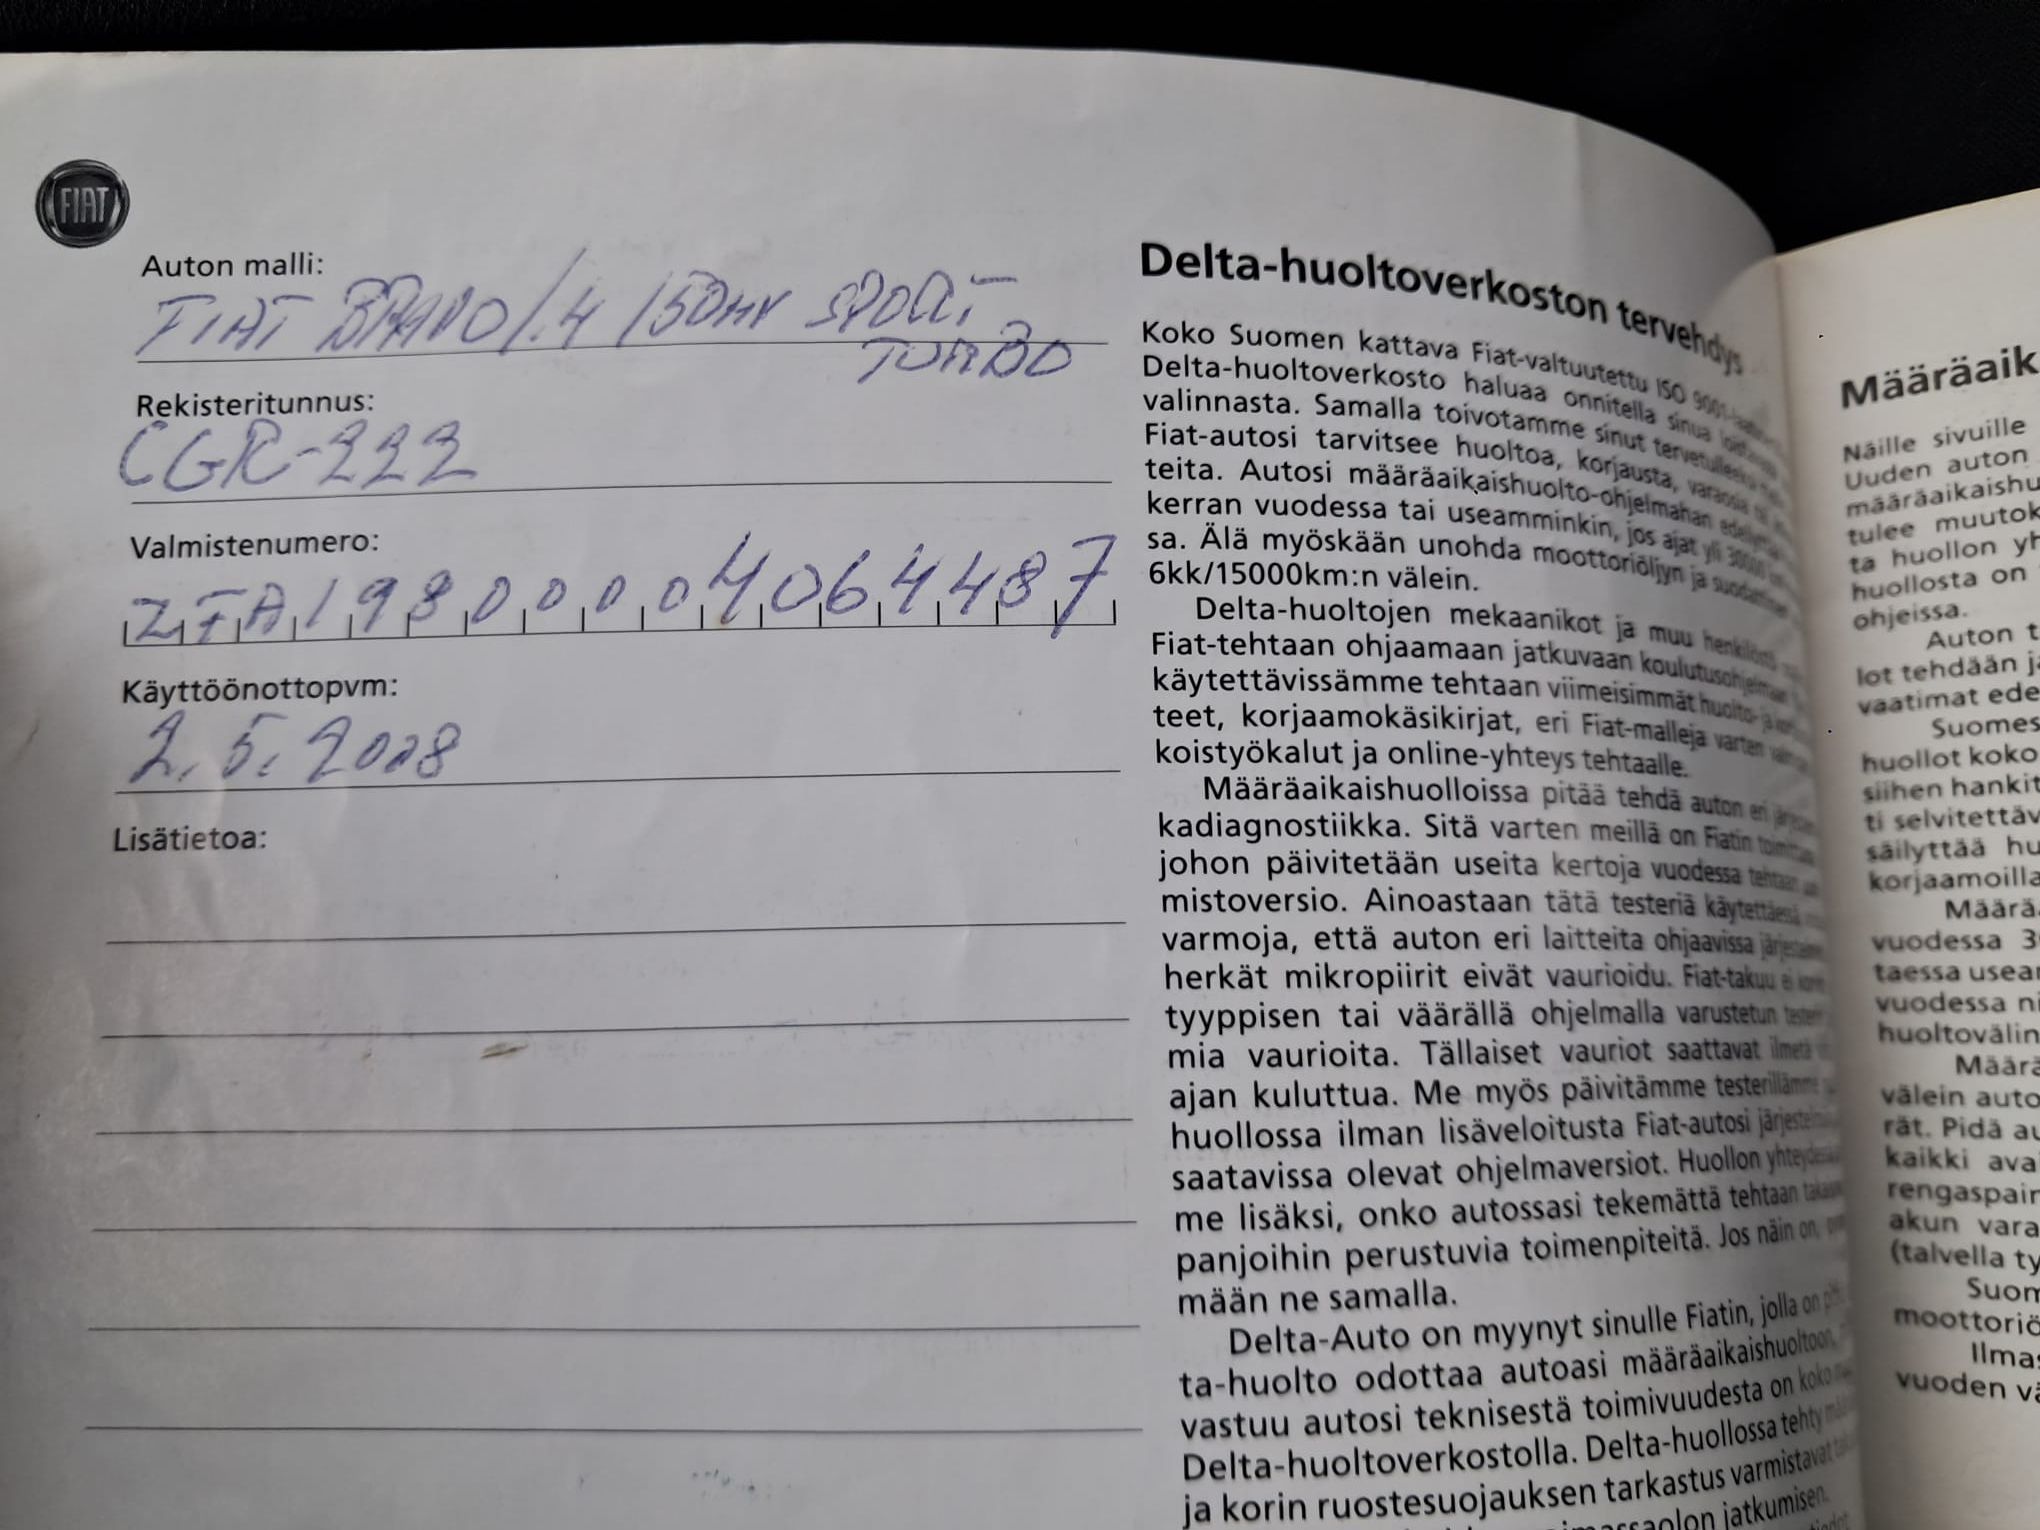 FIAT
Auton malli:
FIAT BRAVO 1.4 150HV SPORT
TURBO
Rekisteritunnus:
CGR-222
Valmistenumero:
ZFA19800004064487
Käyttöönottopvm:
2.5.2008
Lisätietoa:
Delta-huoltoverkoston tervehdys
Koko Suomen kattava Fiat-valtuutettu ISO 9001-
Delta-huoltoverkosto haluaa onnitella sinua
valinnasta. Samalla toivotamme sinut
Fiat-autosi tarvitsee huoltoa, korjausta, varaosia tai
teita. Autosi määräaikaishuolto-ohjelmahan
kerran vuodessa tai useamminkin, jos ajat yli 30000
sa. Älä myöskään unohda moottoriöljyn ja
6kk/15000km:n välein.
Delta-huoltojen mekaanikot ja muu henkilöstö
Fiat-tehtaan ohjaamaan jatkuvaan koulutusohjelmaan
käytettävissämme tehtaan viimeisimmät huolto- ja
teet, korjaamokäsikirjat, eri Fiat-malleja varten
koistyökalut ja online-yhteys tehtaalle.
Määräaikaishuolloissa pitää tehdä auton eri
kadiagnostiikka. Sitä varten meillä on Fiatin
johon päivitetään useita kertoja vuodessa tehtaan
mistoversio. Ainoastaan tätä testeriä käytettäessä
varmoja, että auton eri laitteita ohjaavissa
herkät mikropiirit eivät vaurioidu. Fiat-takuu ei
tyyppisen tai väärällä ohjelmalla varustetun
mia vaurioita. Tällaiset vauriot saattavat ilmetä
ajan kuluttua. Me myös päivitämme testerillämme
huollossa ilman lisäveloitusta Fiat-autosi
saatavissa olevat ohjelmaversiot. Huollon
me lisäksi, onko autossasi tekemättä tehtaan
panjoihin perustuvia toimenpiteitä. Jos näin on,
mään ne samalla.
Delta-Auto on myynyt sinulle Fiatin, jolla on
ta-huolto odottaa autoasi määräaikaishuoltoon,
vastuu autosi teknisestä toimivuudesta on koko
Delta-huoltoverkostolla. Delta-huollossa tehty
ja korin ruostesuojauksen tarkastus varmistavat
jatkumisen.
Määräaik
Näille sivuille
Uuden auton
määräaikaishu
tulee muutok
ta huollon yh
huollosta on
ohjeissa.
Auton t
lot tehdään ja
vaatimat ede
Suomes
huollot koko
siihen hankit
ti selvitettäv
säilyttää hu
korjaamoilla
Määrä
vuodessa 3
taessa usea
vuodessa ni
huoltovälin
Määrä
välein auto
rät. Pidä au
kaikki ava
rengaspain
akun vara
(talvella ty
Suom
moottoriö
Ilma
vuoden vä